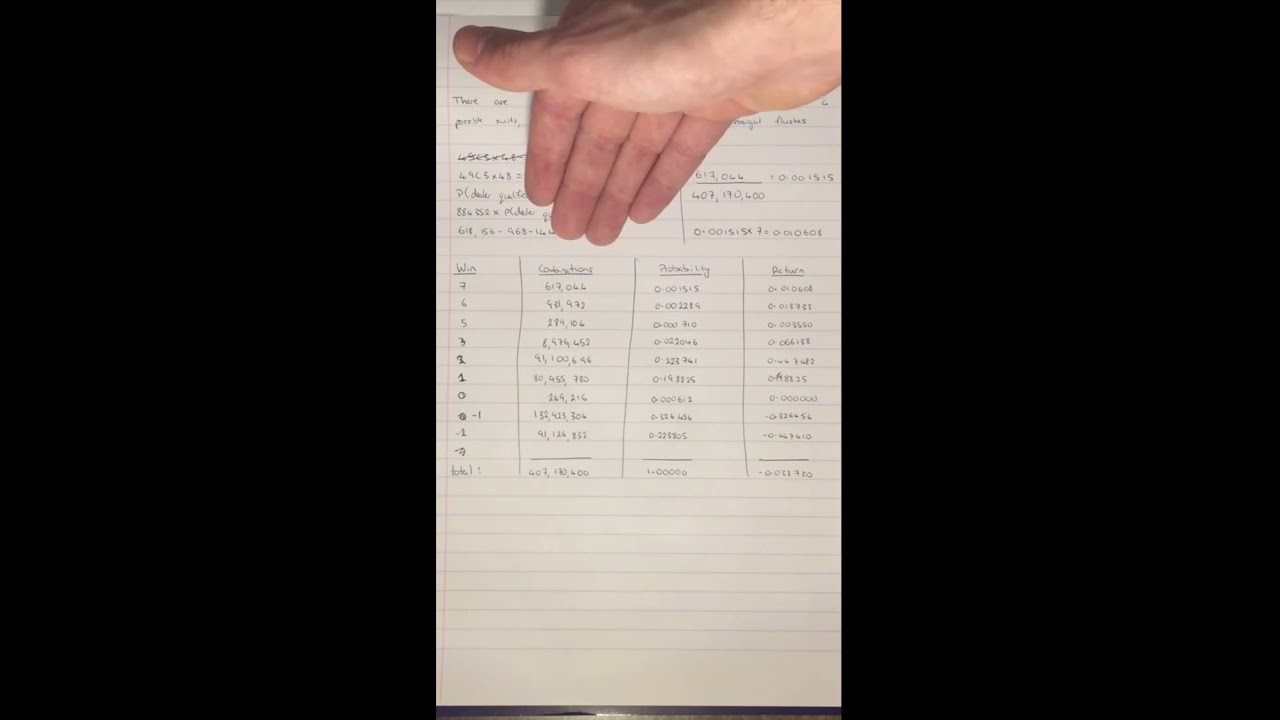 There are 4
possible suits, straight flushes
49C3×48-
49C3×48 = 617,044 = 0.001515
P(dealer qualifie 407,170,400
884352 × P(dealer qu
618,156-968-144 0.001515×7=0.010608
Win Combinations Probability Return
7 617,044 0.001515 0.010608
6 931,972 0.002289 0.013733
5 289,104 0.000710 0.003550
3 8,976,452 0.022046 0.066138
2 91,100,696 0.223741 0.447482
1 80,955,780 0.198825 0.198825
0 249,216 0.000612 0.000000
-1 132,923,304 0.326456 -0.326456
-2 91,126,832 0.223805 -0.447610
total: 407,170,400 1.00000 -0.033730